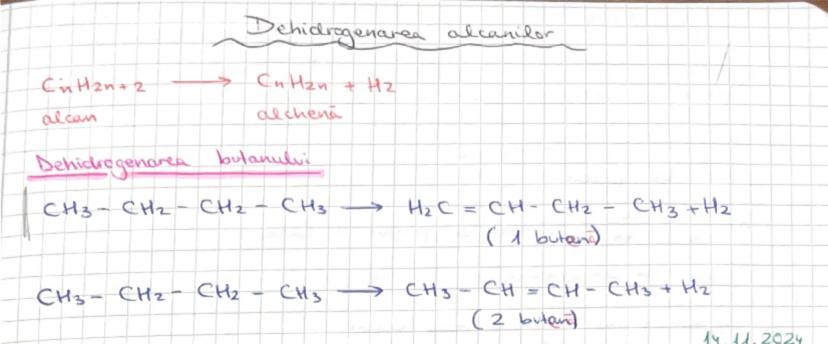 Dehidrogenarea alcanilor
CnH2n+2 → CnH2n + H2
alcan alchenă
Dehidrogenarea butanului
CH3 - CH2 - CH2 - CH3 → H2C = CH - CH2 - CH3 + H2
(1 butenă)
CH3 - CH2 - CH2 - CH3 → CH3 - CH = CH - CH3 + H2
(2 butenă)
14.11.2024